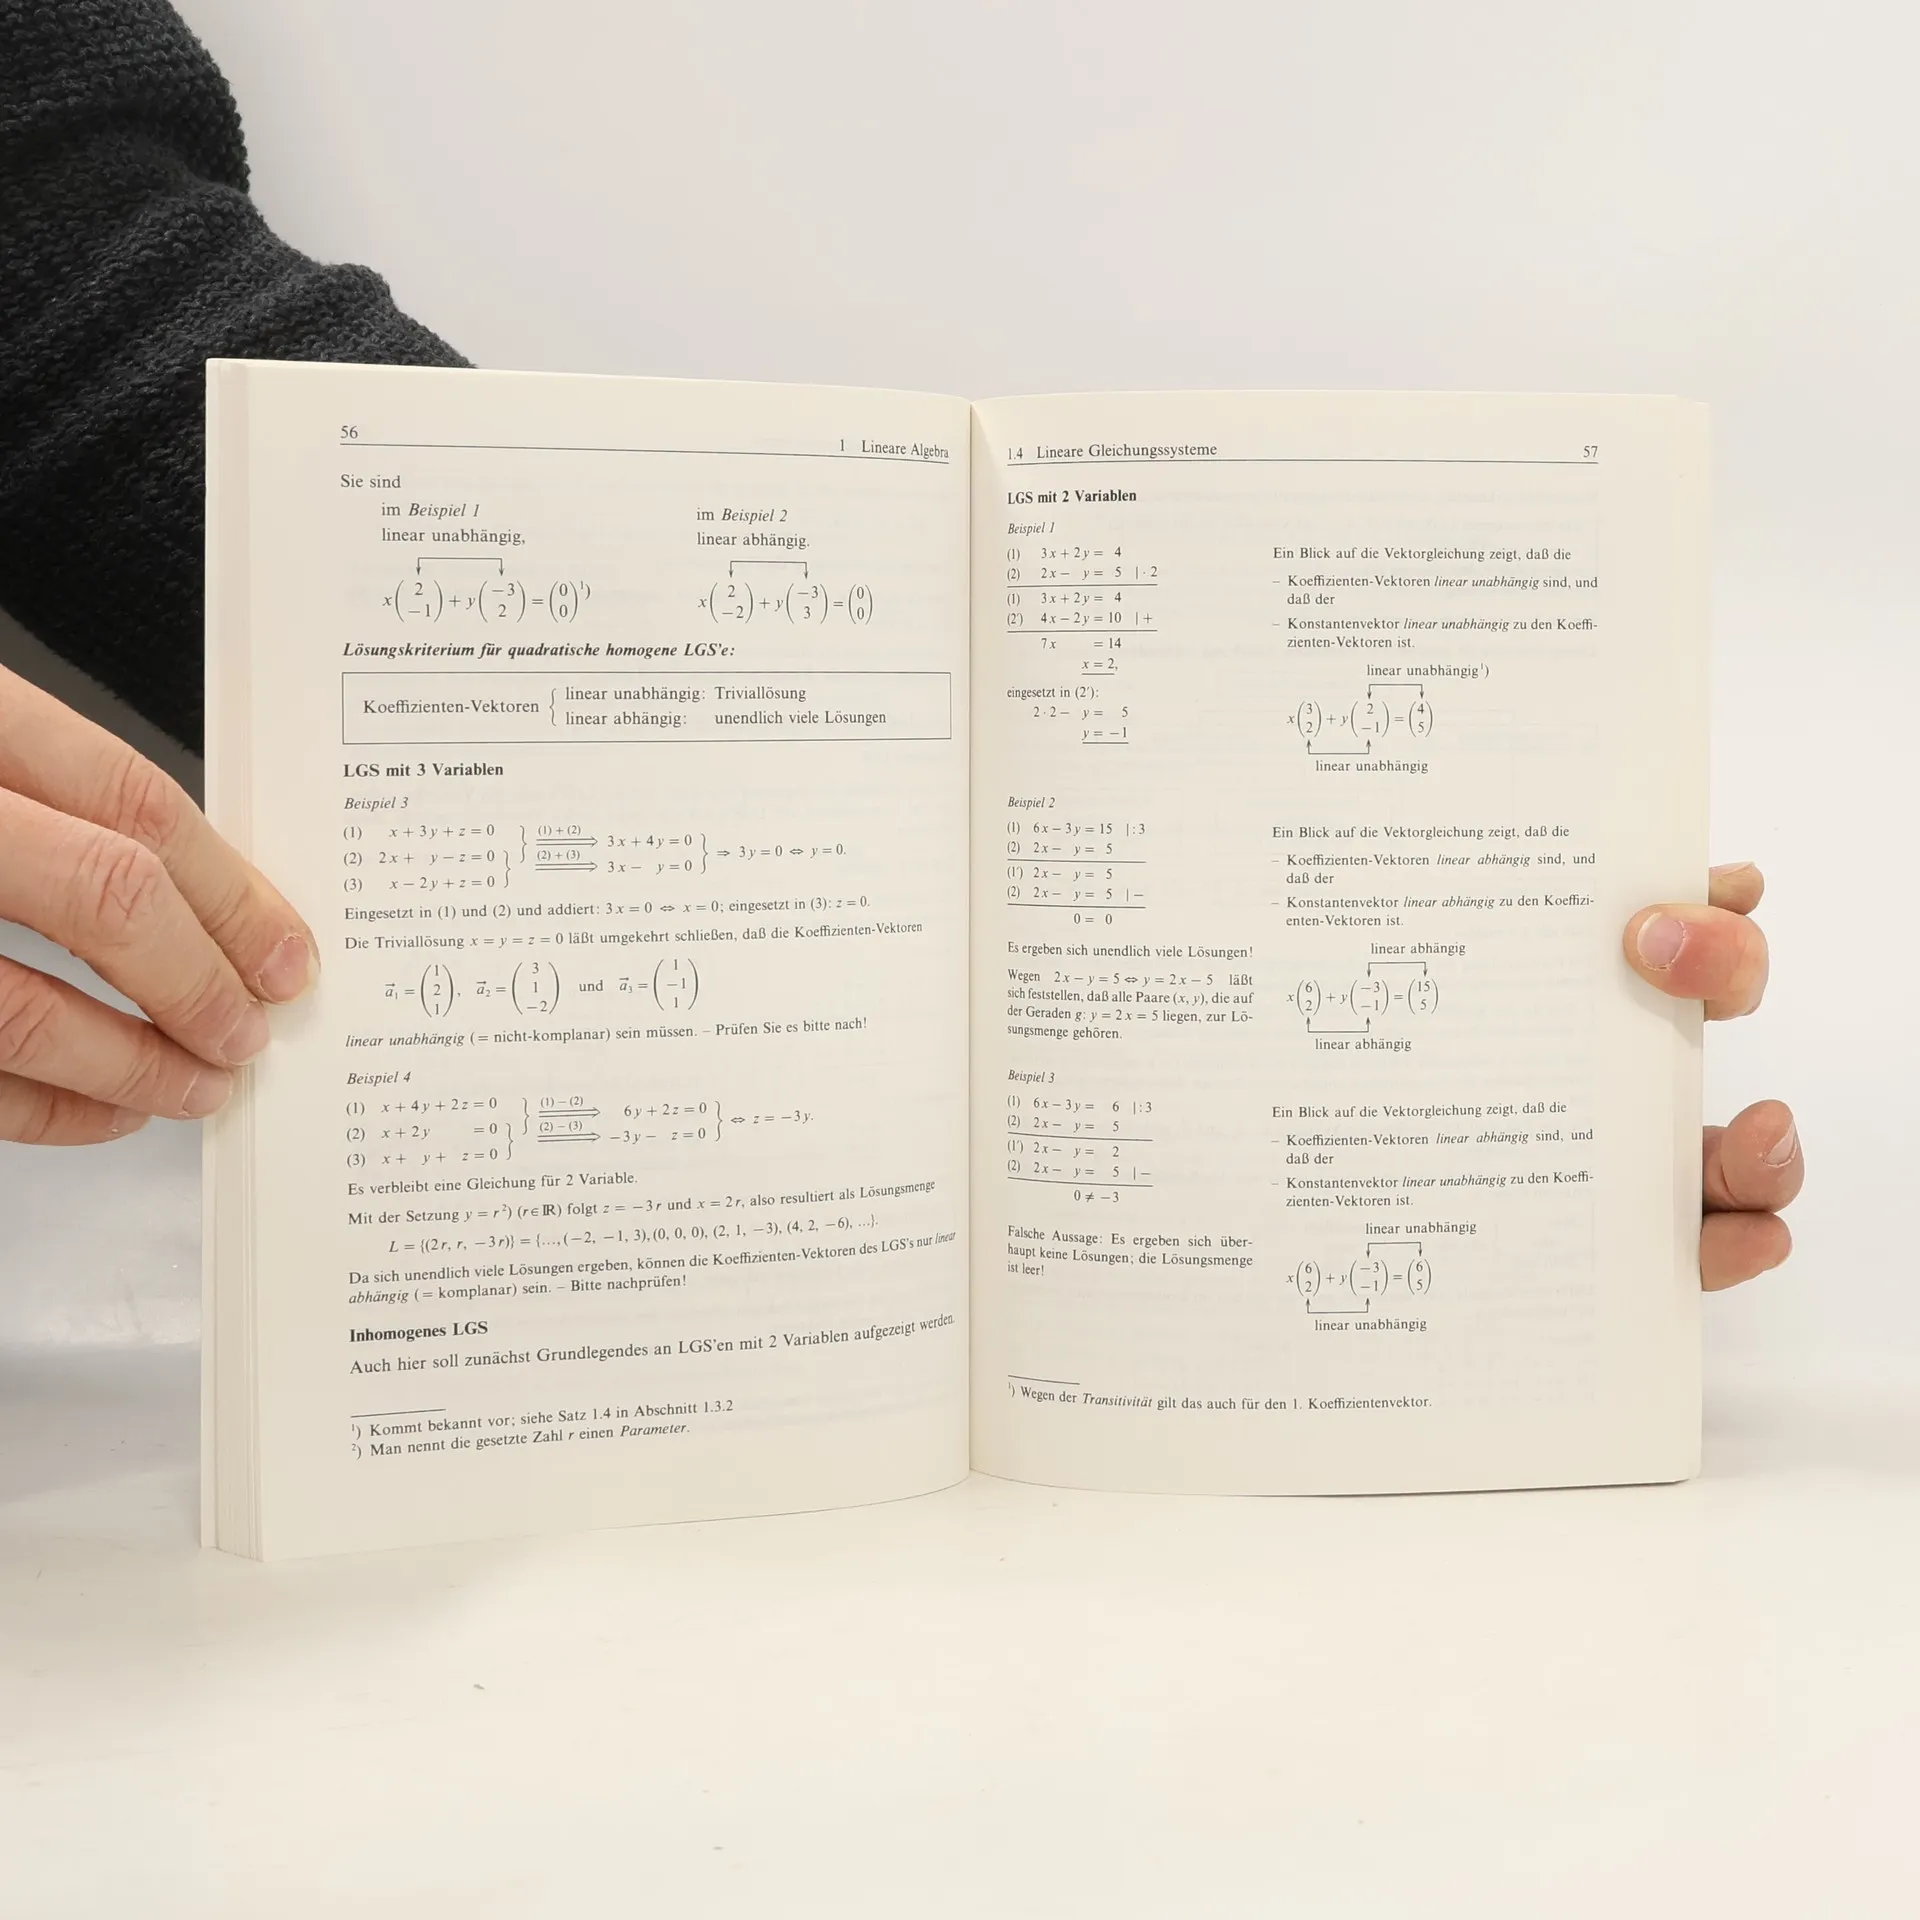 56
1 Lineare Algebra
Sie sind
im Beispiel 1
linear unabhängig,
x(2 −1) + y(−3 2) = (0 0)¹)
im Beispiel 2
linear abhängig.
x(2 −2) + y(−3 3) = (0 0)
Lösungskriterium für quadratische homogene LGS'e:
Koeffizienten-Vektoren { linear unabhängig: Triviallösung
linear abhängig: unendlich viele Lösungen
LGS mit 3 Variablen
Beispiel 3
(1) x + 3y + z = 0
(2) 2x + y − z = 0
(3) x − 2y + z = 0
(1) + (2) ⟹ 3x + 4y = 0
(2) + (3) ⟹ 3x − y = 0
⇒ 3y = 0 ⇔ y = 0.
Eingesetzt in (1) und (2) und addiert: 3x = 0 ⇔ x = 0; eingesetzt in (3): z = 0.
Die Triviallösung x = y = z = 0 läßt umgekehrt schließen, daß die Koeffizienten-Vektoren
a⃗₁ = (1 2 1), a⃗₂ = (3 1 −2) und a⃗₃ = (1 −1 1)
linear unabhängig (= nicht-komplanar) sein müssen. – Prüfen Sie es bitte nach!
Beispiel 4
(1) x + 4y + 2z = 0
(2) x + 2y = 0
(3) x + y + z = 0
(1) − (2) ⟹ 6y + 2z = 0
(2) − (3) ⟹ −3y − z = 0
⇔ z = −3y.
Es verbleibt eine Gleichung für 2 Variable.
Mit der Setzung y = r²) (r ∈ ℝ) folgt z = −3r und x = 2r, also resultiert als Lösungsmenge
L = {(2r, r, −3r)} = {..., (−2, −1, 3), (0, 0, 0), (2, 1, −3), (4, 2, −6), ...}.
Da sich unendlich viele Lösungen ergeben, können die Koeffizienten-Vektoren des LGS's nur linear
abhängig (= komplanar) sein. – Bitte nachprüfen!
Inhomogenes LGS
Auch hier soll zunächst Grundlegendes an LGS'en mit 2 Variablen aufgezeigt werden.
¹) Kommt bekannt vor; siehe Satz 1.4 in Abschnitt 1.3.2
²) Man nennt die gesetzte Zahl r einen Parameter.
1.4 Lineare Gleichungssysteme
57
LGS mit 2 Variablen
Beispiel 1
(1) 3x + 2y = 4
(2) 2x − y = 5 | · 2
(1) 3x + 2y = 4
(2') 4x − 2y = 10 | +
7x = 14
x = 2,
eingesetzt in (2'):
2 · 2 − y = 5
y = −1
Ein Blick auf die Vektorgleichung zeigt, daß die
– Koeffizienten-Vektoren linear unabhängig sind, und
daß der
– Konstantenvektor linear unabhängig zu den Koeffi-
zienten-Vektoren ist.
linear unabhängig¹)
x(3 2) + y(2 −1) = (4 5)
linear unabhängig
Beispiel 2
(1) 6x − 3y = 15 | : 3
(2) 2x − y = 5
(1') 2x − y = 5
(2) 2x − y = 5 | −
0 = 0
Es ergeben sich unendlich viele Lösungen!
Wegen 2x − y = 5 ⇔ y = 2x − 5 läßt
sich feststellen, daß alle Paare (x, y), die auf
der Geraden g: y = 2x = 5 liegen, zur Lö-
sungsmenge gehören.
Ein Blick auf die Vektorgleichung zeigt, daß die
– Koeffizienten-Vektoren linear abhängig sind, und
daß der
– Konstantenvektor linear abhängig zu den Koeffizi-
enten-Vektoren ist.
linear abhängig
x(6 2) + y(−3 −1) = (15 5)
linear abhängig
Beispiel 3
(1) 6x − 3y = 6 | : 3
(2) 2x − y = 5
(1') 2x − y = 2
(2) 2x − y = 5 | −
0 ≠ −3
Falsche Aussage: Es ergeben sich über-
haupt keine Lösungen; die Lösungsmenge
ist leer!
Ein Blick auf die Vektorgleichung zeigt, daß die
– Koeffizienten-Vektoren linear abhängig sind, und
daß der
– Konstantenvektor linear unabhängig zu den Koeffi-
zienten-Vektoren ist.
linear unabhängig
x(6 2) + y(−3 −1) = (6 5)
linear unabhängig
¹) Wegen der Transitivität gilt das auch für den 1. Koeffizientenvektor.